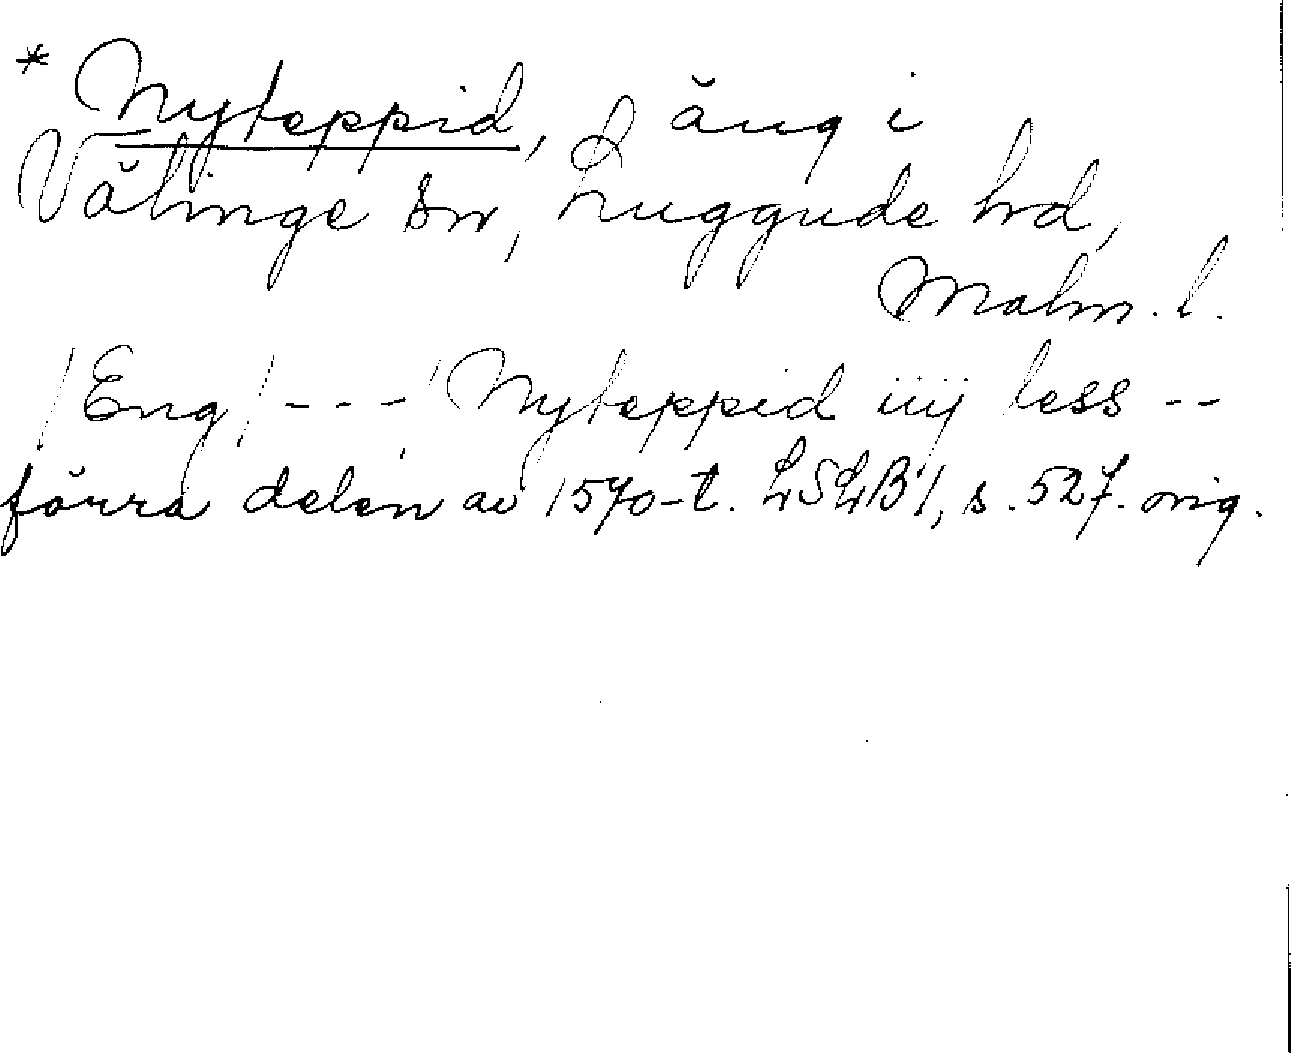 * Nyteppid, äng i
Välinge sn, Luggude hd,
Malm. l.
/Eng/ - - - / Nyteppid iiij less - -
förra delen av 1570-t. LSLB 1, s. 527. orig.